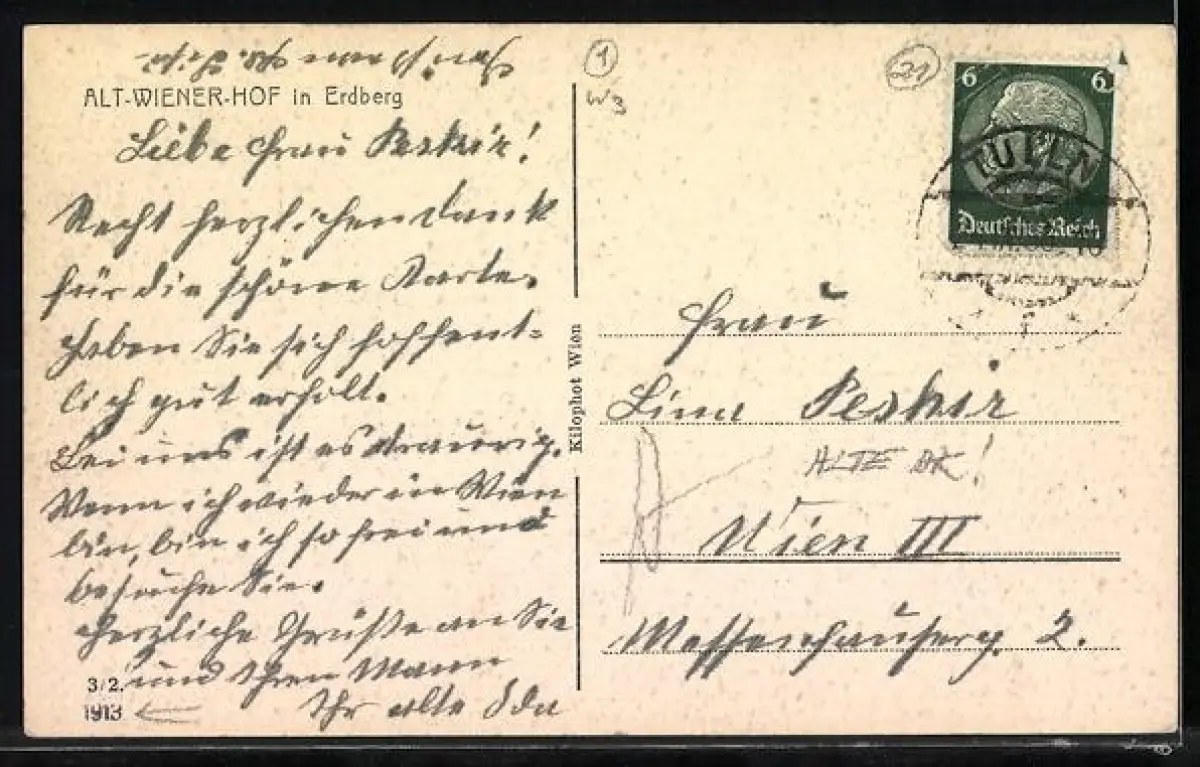 ALT-WIENER-HOF in Erdberg
Liebe Frau Peskir!
Recht herzlichen dank
für die schöne Karte.
Haben Sie sich hoffent-
lich gut erholt.
Bei uns ist es traurig.
Wenn ich wieder in Wien
bin, bin ich so frei und
besuche Sie.
Herzliche Grüße an Sie
und Ihren Mann
Ihr alte Ida
3/2.
1913
Kilophot Wien
1
W3
21
6 6
Deutsches Reich
TULLN
Frau
Lina Peskir
ALTE AK!
Wien III
2.